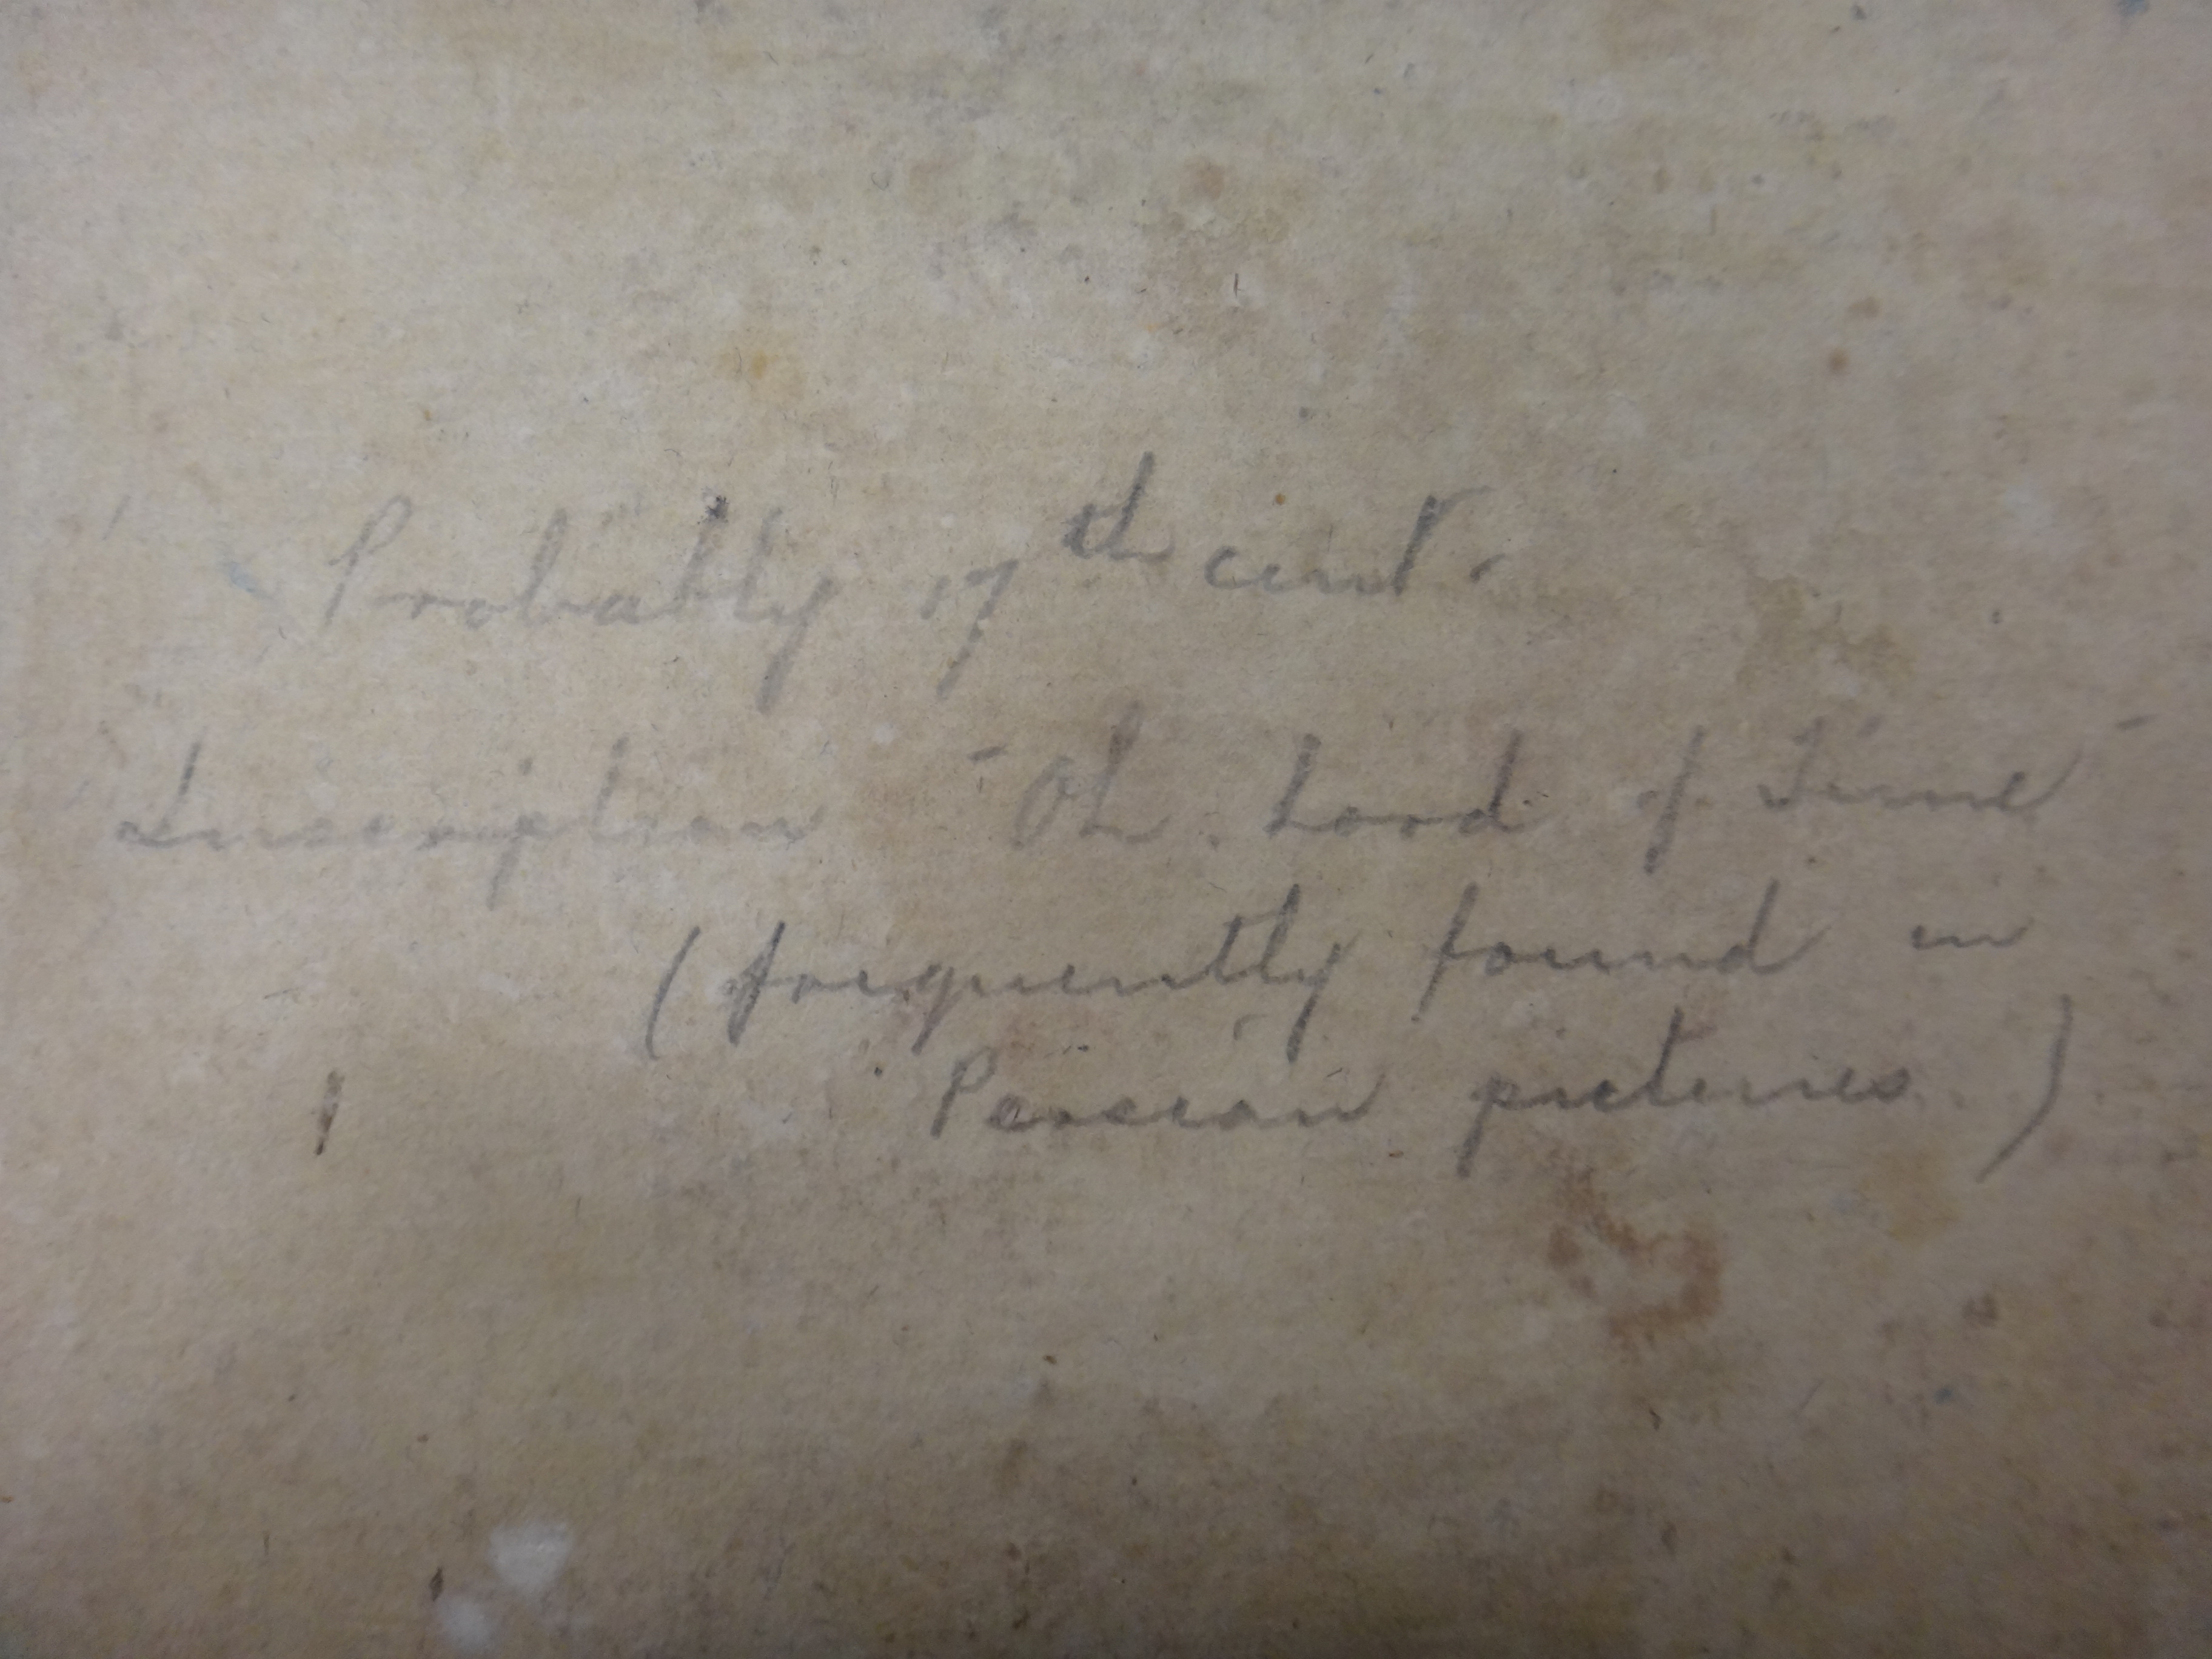 Probably 17th cent.
Inscription "Oh. Lord of Time"
(frequently found in
Persian pictures.)